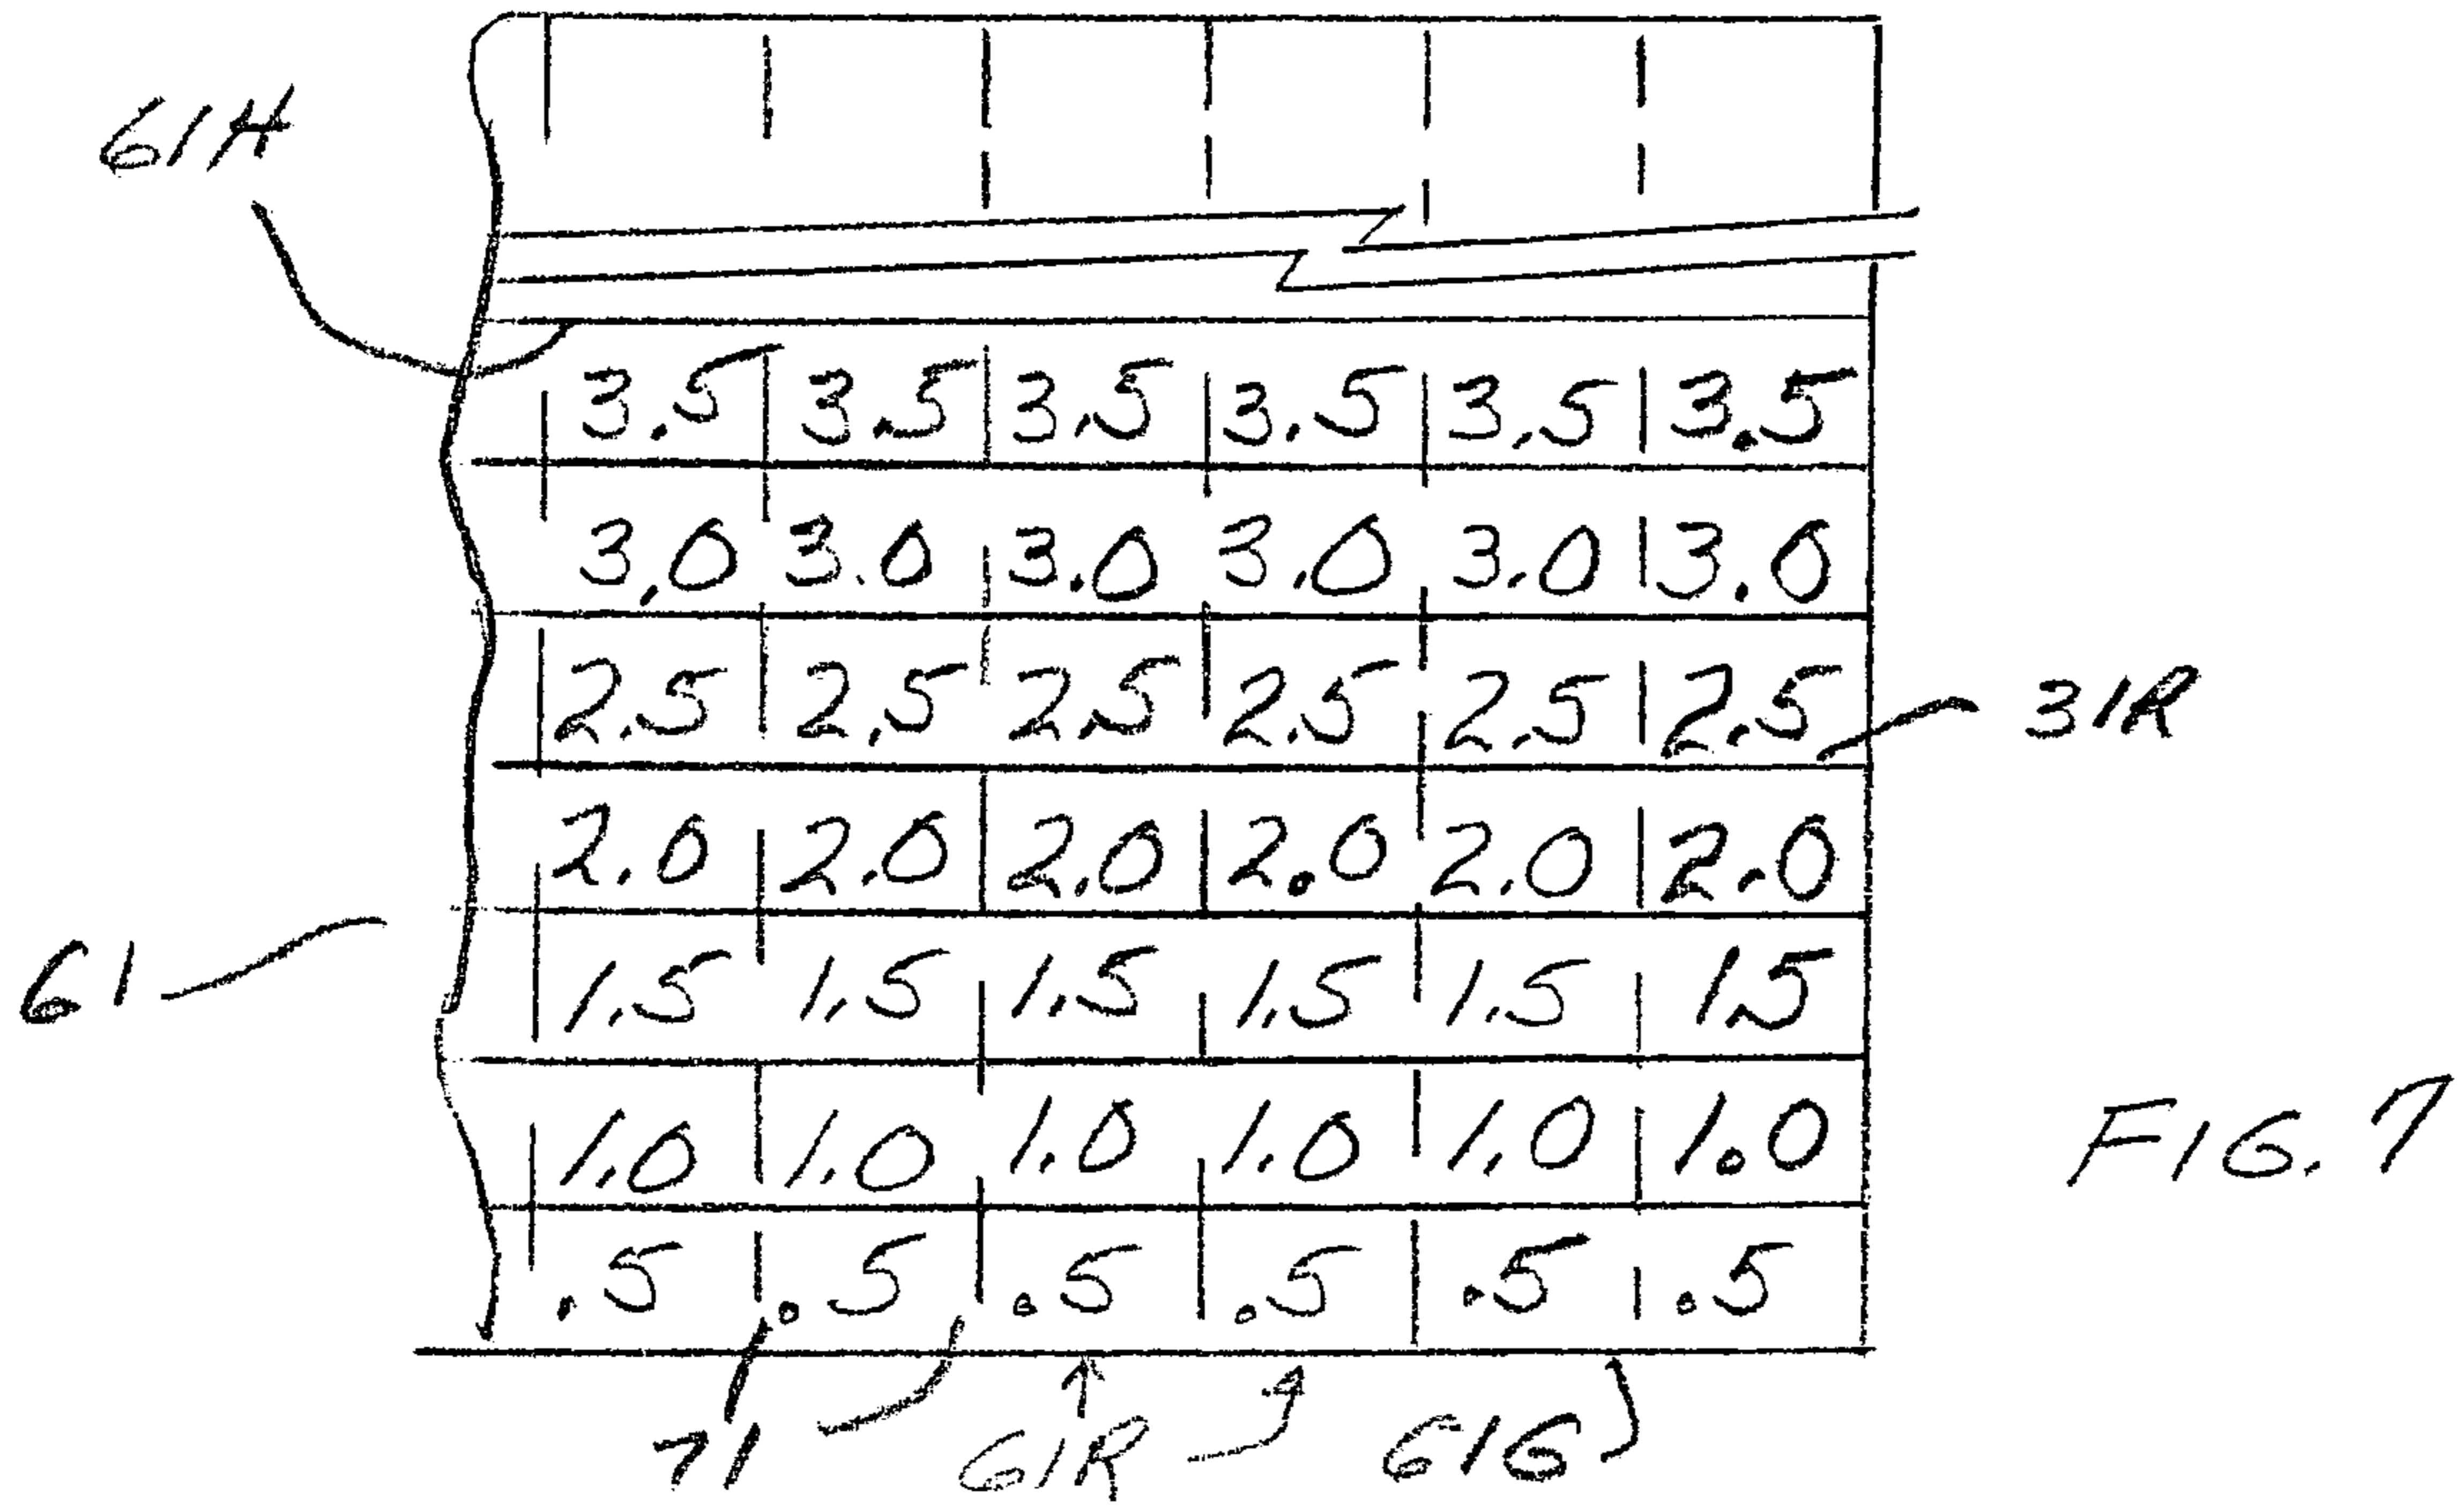 61H
3.5 3.5 3.5 3.5 3.5 3.5
3.0 3.0 3.0 3.0 3.0 3.0
2.5 2.5 2.5 2.5 2.5 2.5
31R
2.0 2.0 2.0 2.0 2.0 2.0
61
1.5 1.5 1.5 1.5 1.5 1.5
1.0 1.0 1.0 1.0 1.0 1.0
FIG. 7
.5 .5 .5 .5 .5 .5
71 61R 61G